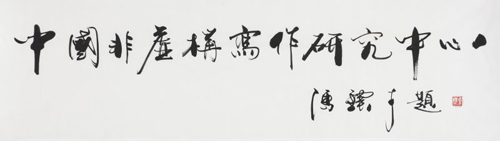 中國非虛構寫作研究中心
馮驥才題